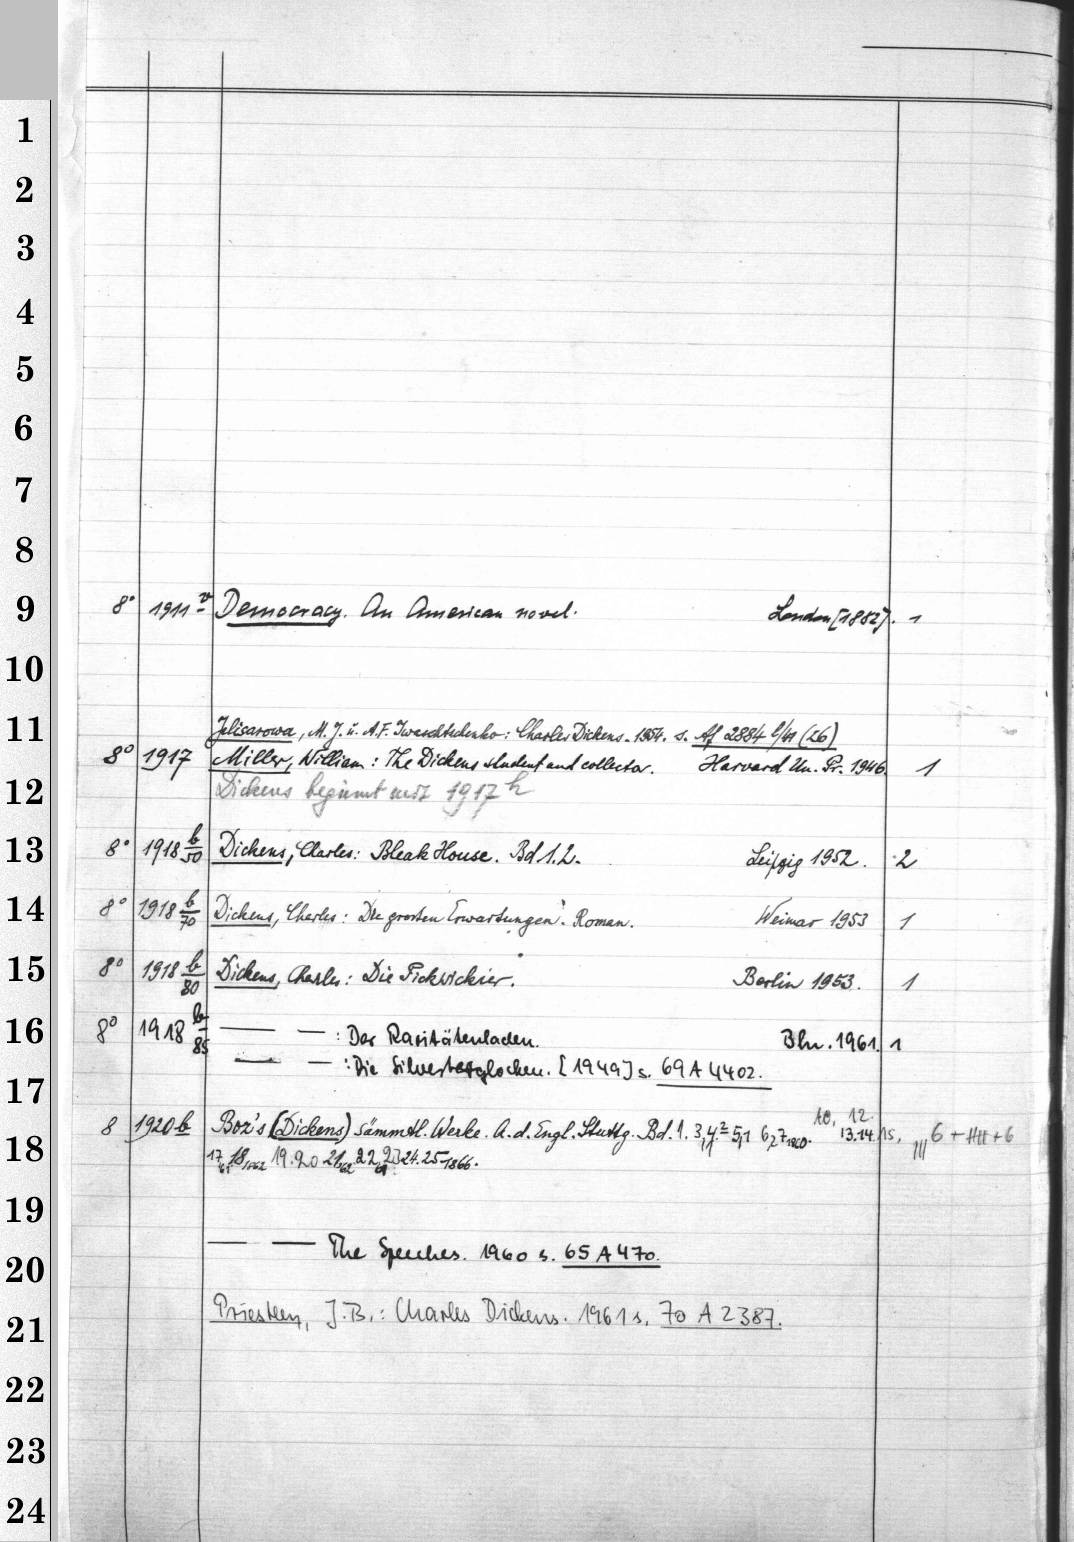 1
2
3
4
5
6
7
8
9 8° 1911 v Democracy. An American novel. London [1882]. 1
10
11 Jelisarowa, M. J. u. A. F. Iwaschtschenko: Charles Dickens. 1954. s. Af 2884 (26)
8° 1917 Miller, William: The Dickens student and collector. Harvard Un. Pr. 1946. 1
12 Dickens beginnt mit 1917 h
13 8° 1918 b/50 Dickens, Charles: Bleak House. Bd 1.2. Leipzig 1952. 2
14 8° 1918 b/70 Dickens, Charles: Die großen Erwartungen. Roman. Weimar 1953 1
15 8° 1918 b/80 Dickens, Charles: Die Pickwickier. Berlin 1953. 1
16 8° 1918 b/85 — — : Der Raritätenladen. Bln. 1961. 1
— — : Die Silvesterglocken. [1949] s. 69 A 4402.
17
8 1920 b Boz's (Dickens) sämmtl. Werke. A. d. Engl. Stuttg. Bd. 1. 3, 4² 5,1 6,7 10, 12. 13.14. 15, 6 + +6
18 17 18 1862 19.20 21 62 22 23 24.25 1866.
19
— — The Speeches. 1960 s. 65 A 470.
20
21 Priestley, J. B.: Charles Dickens. 1961 s. 70 A 2387.
22
23
24